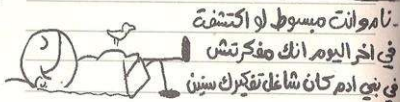 - نام وانت مبسوط لو اكتشفت
في اخر اليوم انك مفكرتش
في بني ادم كان شاغل تفكيرك سنين